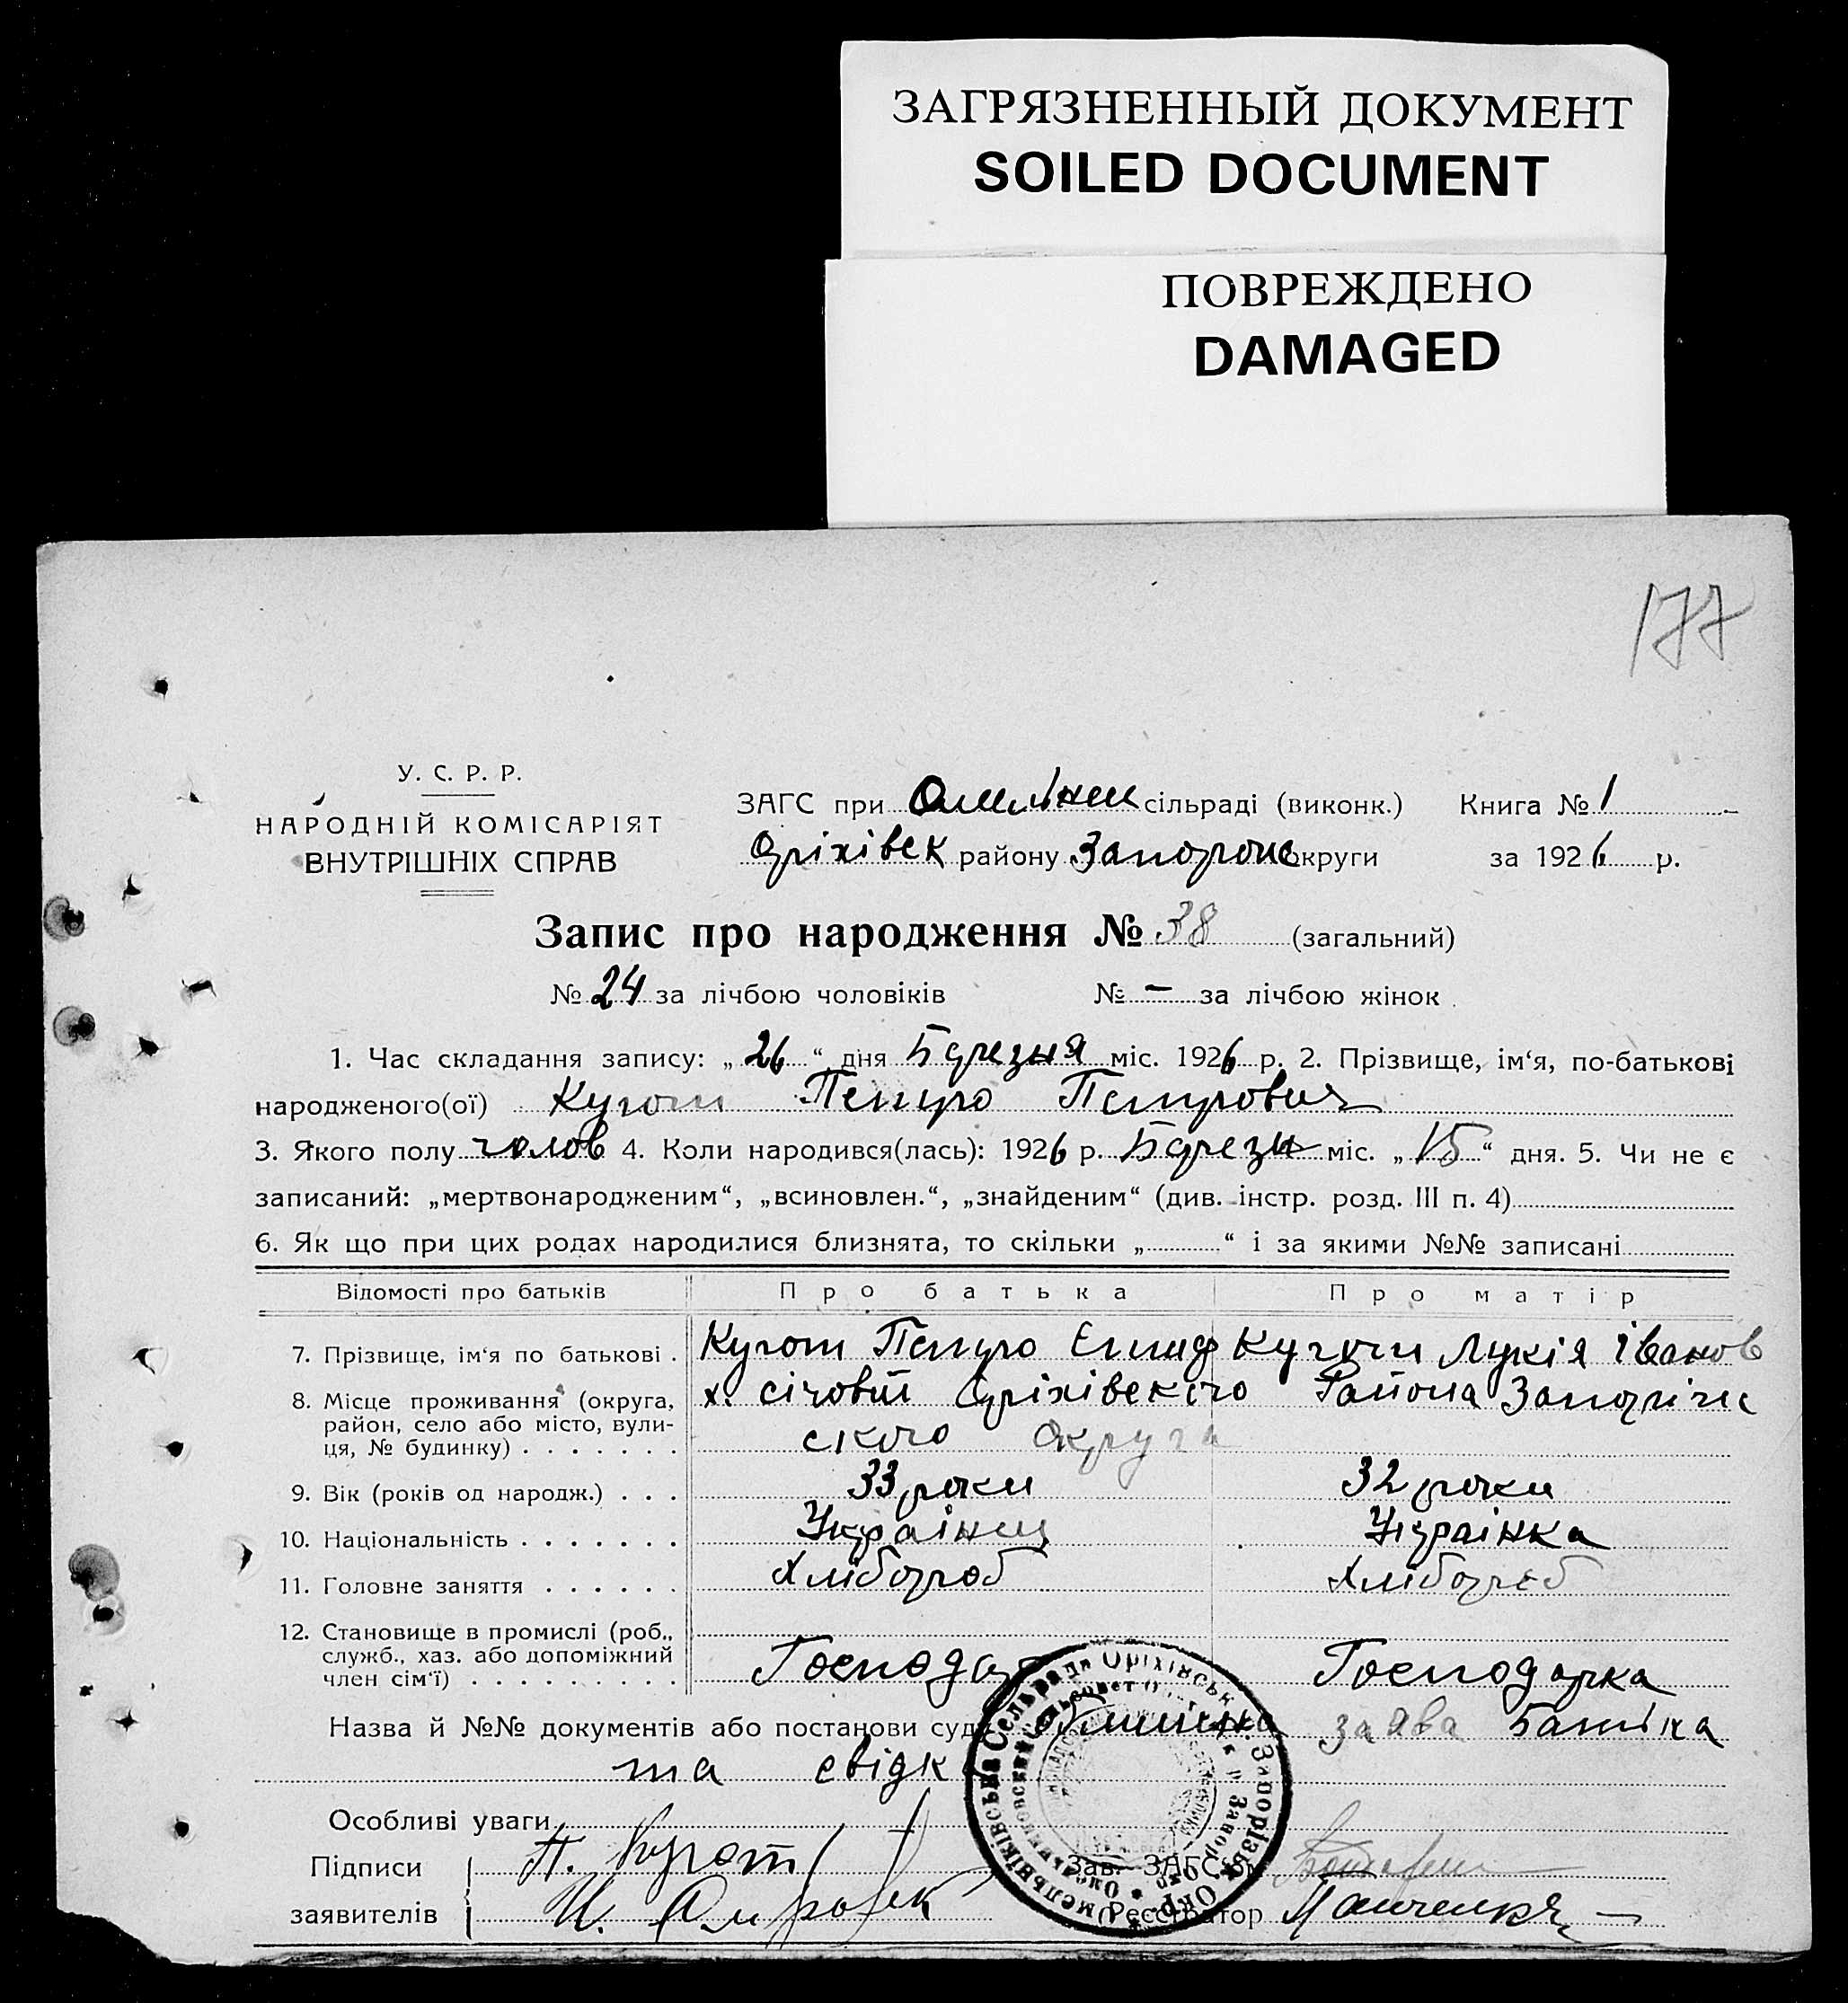 ЗАГРЯЗНЕННЫЙ ДОКУМЕНТ
SOILED DOCUMENT
ПОВРЕЖДЕНО
DAMAGED
177
У. С. Р. Р.
НАРОДНІЙ КОМІСАРІЯТ
ВНУТРІШНІХ СПРАВ
ЗАГС при сільраді (виконк.) Книга № 1
Оріхівск району Запорож округи за 1926 р.
Запис про народження № 38 (загальний)
№ 24 за лічбою чоловіків № — за лічбою жінок
1. Час складання запису: „26“ дня Березня міс. 1926 р. 2. Прізвище, ім‘я, по-батькові
народженого(ої) Кугот Петро Петрович
3. Якого полу чолов 4. Коли народився(лась): 1926 р. Березн міс. „15“ дня. 5. Чи не є
записаний: „мертвонародженим“, „всиновлен.“, „знайденим“ (див. інстр. розд. III п. 4)
6. Як що при цих родах народилися близнята, то скільки „ “ і за якими №№ записані
Відомості про батьків Про батька Про матір
7. Прізвище, ім‘я по батькові . Кугот Петро Кугот Лукія Іванов
8. Місце проживання (округа, район, село або місто, вулиця, № будинку) х. Оріхівского Района
ского Округа
9. Вік (років од народж.) . . . 33 роки 32 роки
10. Національність . . . . . . . Українец Українка
11. Головне заняття . . . . . . Хлібороб Хлібороб
12. Становище в промислі (роб., служб., хаз. або допоміжний член сім‘ї) . . . . . . . . . Господар Господарка
Назва й №№ документів або постанови суду заява Батька
та свідк
Особливі уваги
Підписи П. Кугот Зав. ЗАГС‘ом
заявителів Реєстратор
Омельниківська Сельрада Оріхівськ. Запорізьк. Окр.